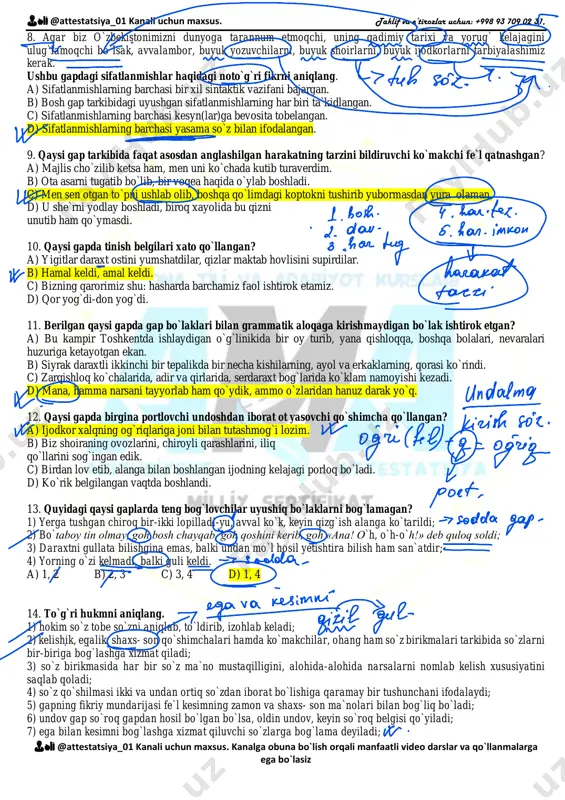 @attestatsiya_01 Kanali uchun maxsus. Taklif va e'tirozlar uchun: +998 93 709 02 31.
8. Agar biz O`zbekistonimizni dunyoga tarannum etmoqchi, uning qadimiy tarixi va yorug` kelajagini
ulug`lamoqchi bo`lsak, avvalambor, buyuk yozuvchilarni, buyuk shoirlarni, buyuk ijodkorlarni tarbiyalashimiz
kerak.
Ushbu gapdagi sifatlanmishlar haqidagi noto`g`ri fikrni aniqlang.
tub so'z.
A) Sifatlanmishlarning barchasi bir xil sintaktik vazifani bajargan.
B) Bosh gap tarkibidagi uyushgan sifatlanmishlarning har biri ta`kidlangan.
C) Sifatlanmishlarning barchasi kesyn(lar)ga bevosita tobelangan.
D) Sifatlanmishlarning barchasi yasama so`z bilan ifodalangan.
9. Qaysi gap tarkibida faqat asosdan anglashilgan harakatning tarzini bildiruvchi ko`makchi fe`l qatnashgan?
A) Majlis cho`zilib ketsa ham, men uni ko`chada kutib turaverdim.
B) Ota asarni tugatib bo`lib, bir voqea haqida o`ylab boshladi.
C) Men sen otgan to`pni ushlab olib, boshqa qo`limdagi koptokni tushirib yubormasdan yura olaman.
D) U she`rni yodlay boshladi, biroq xayolida bu qizni
unutib ham qo`ymasdi.
1. bosh.
2. dav.
3. har tug
4. har. tez.
5. har. imkon
10. Qaysi gapda tinish belgilari xato qo`llangan?
A) Yigitlar daraxt ostini yumshatdilar, qizlar maktab hovlisini supirdilar.
B) Hamal keldi, amal keldi.
C) Bizning qarorimiz shu: hasharda barchamiz faol ishtirok etamiz.
D) Qor yog`di-don yog`di.
harakat
tarzi
11. Berilgan qaysi gapda gap bo`laklari bilan grammatik aloqaga kirishmaydigan bo`lak ishtirok etgan?
A) Bu kampir Toshkentda ishlaydigan o`g`linikida bir oy turib, yana qishloqqa, boshqa bolalari, nevaralari
huzuriga ketayotgan ekan.
B) Siyrak daraxtli ikkinchi bir tepalikda bir necha kishilarning, ayol va erkaklarning, qorasi ko`rindi.
C) Zarqishloq ko`chalarida, adir va qirlarida, serdaraxt bog`larida ko`klam namoyishi kezadi.
D) Mana, hamma narsani tayyorlab ham qo`ydik, ammo o`zlaridan hanuz darak yo`q.
Undalma
kirish so'z.
12. Qaysi gapda birgina portlovchi undoshdan iborat ot yasovchi qo`shimcha qo`llangan?
A) Ijodkor xalqning og`riqlariga joni bilan tutashmog`i lozim.
B) Biz shoiraning ovozlarini, chiroyli qarashlarini, iliq
qo`llarini sog`ingan edik.
C) Birdan lov etib, alanga bilan boshlangan ijodning kelajagi porloq bo`ladi.
D) Ko`rik belgilangan vaqtda boshlandi.
ogri (fel) + q = og'riq
port.
13. Quyidagi qaysi gaplarda teng bog`lovchilar uyushiq bo`laklarni bog`lamagan?
1) Yerga tushgan chirog bir-ikki lopilladi-yu, avval ko`k, keyin qizg`ish alanga ko`tarildi; sodda gap.
2) Bo`taboy tin olmay, goh bosh chayqab, goh qoshini kerib, goh «Ana! O`h, o`h-o`h!» deb quloq soldi;
3) Daraxtni gullata bilishgina emas, balki undan mo`l hosil yetishtira bilish ham san`atdir;
4) Yorning o`zi kelmadi, balki guli keldi. sodda
A) 1, 2 B) 2, 3 C) 3, 4 D) 1, 4
14. To`g`ri hukmni aniqlang.
ega va kesimni
qizil gul
1) hokim so`z tobe so`zni aniqlab, to`ldirib, izohlab keladi;
2) kelishik, egalik, shaxs- son qo`shimchalari hamda ko`makchilar, ohang ham so`z birikmalari tarkibida so`zlarni
bir-biriga bog`lashga xizmat qiladi;
3) so`z birikmasida har bir so`z ma`no mustaqilligini, alohida-alohida narsalarni nomlab kelish xususiyatini
saqlab qoladi;
4) so`z qo`shilmasi ikki va undan ortiq so`zdan iborat bo`lishiga qaramay bir tushunchani ifodalaydi;
5) gapning fikriy mundarijasi fe`l kesimning zamon va shaxs- son ma`nolari bilan bog`liq bo`ladi;
6) undov gap so`roq gapdan hosil bo`lgan bo`lsa, oldin undov, keyin so`roq belgisi qo`yiladi;
7) ega bilan kesimni bog`lashga xizmat qiluvchi so`zlarga bog`lama deyiladi;
@attestatsiya_01 Kanali uchun maxsus. Kanalga obuna bo`lish orqali manfaatli video darslar va qo`llanmalarga
ega bo`lasiz